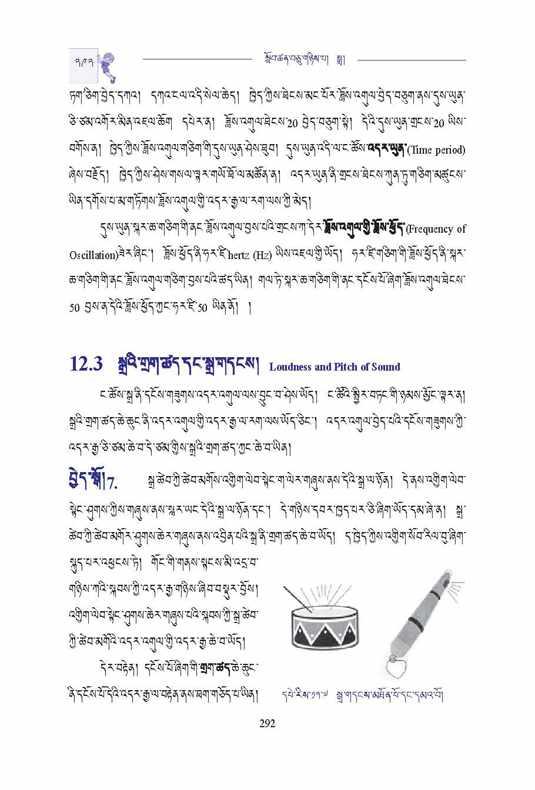 ༢༩༢
སློབ་ཚན་བཅུ་གཉིས་པ། སྒྲ།
ཏག་ཅིག་བྱེད་དཀའ། དཀའ་ངལ་འདི་སེལ་ཆེད། ཁྱེད་ཀྱིས་ཐེངས་མང་པོར་ཟློས་འགུལ་བྱེད་བཅུག་ནས་དུས་ཡུན་
ཅི་ཙམ་འགོར་མིན་འཇལ་ཆོག དཔེར་ན། ཟློས་འགུལ་ཐེངས་20 བྱེད་བཅུག་སྟེ། དེའི་དུས་ཡུན་གྲངས་20 ཡིས་
བགོས་ན། ཁྱེད་ཀྱིས་ཟློས་འགུལ་གཅིག་གི་དུས་ཡུན་ཤེས་ཐུབ། དུས་ཡུན་འདི་ལ་ང་ཚོས་འདར་ཡུན་(Time period)
ཞེས་བརྗོད། ཁྱེད་ཀྱིས་ཤེས་གསལ་ལྟར་གཡོ་ཐོ་ལ་མཚོན་ན། འདར་ཡུན་ནི་གྲངས་ཐེངས་ཀུན་ཏུ་གཅིག་མཚུངས་
ཡིན་དགོས་པ་མ་གཏོགས་ཟློས་འགུལ་གྱི་འདར་རྒྱ་ལ་རག་ལས་ཀྱི་མེད།
དུས་ཡུན་སྐར་ཆ་གཅིག་གི་ནང་ཟློས་འགུལ་བྱས་པའི་གྲངས་ཀ་དེར་ཟློས་འགུལ་གྱི་ཟློས་ཕྱོད་(Frequency of
Oscillation)ཟེར་ཞིང་། ཟློས་ཕྱོད་ནི་ཧར་ཛི་hertz (Hz) ཡིས་འཇལ་གྱི་ཡོད། ཧར་ཛི་གཅིག་གི་ཟློས་ཕྱོད་ནི་སྐར་
ཆ་གཅིག་གི་ནང་ཟློས་འགུལ་གཅིག་བྱས་པའི་ཚད་ཡིན། གལ་ཏེ་སྐར་ཆ་གཅིག་གི་ནང་དངོས་པོ་ཞིག་ཟློས་འགུལ་ཐེངས་
50 བྱས་ན་དེའི་ཟློས་ཕྱོད་ཀྱང་ཧར་ཛི་50 ཡིན་ནོ། །
12.3 སྒྲའི་གྲག་ཚད་དང་སྒྲ་གདངས། Loudness and Pitch of Sound
ང་ཚོས་སྒྲ་ནི་དངོས་གཟུགས་འདར་འགུལ་ལས་བྱུང་བ་ཤེས་ཡོད། ང་ཚོའི་སྤྱིར་བཏང་གི་ཉམས་མྱོང་ལྟར་ན།
སྒྲའི་གྲག་ཚད་ཆེ་ཆུང་ནི་འདར་འགུལ་གྱི་འདར་རྒྱ་ལ་རག་ལས་ཡོད་ཅིང་། འདར་འགུལ་བྱེད་པའི་དངོས་གཟུགས་ཀྱི་
འདར་རྒྱ་ཅི་ཙམ་ཆེ་བ་དེ་ཙམ་གྱིས་སྒྲའི་གྲག་ཚད་ཀྱང་ཆེ་བ་ཡིན།
བྱེད་སྒོ།7. སྒྲ་ཚེབ་ཀྱི་ཚེབ་མགོས་འགྱིག་ལེབ་སྟེང་ག་ལེར་གཞུས་ནས་དེའི་སྒྲ་ལ་ཉོན། དེ་ནས་འགྱིག་ལེབ་
སྟེང་ཤུགས་ཀྱིས་གཞུས་ནས་སྐར་ཡང་དེའི་སྒྲ་ལ་ཉོན་དང་། དེ་གཉིས་དབར་ཁྱད་པར་ཅི་ཞིག་ཡོད་དམ་ཞེ་ན། སྒྲ་
ཚེབ་ཀྱི་ཚེབ་མགོར་ཤུགས་ཆེར་གཞུས་ནས་འབྱིན་པའི་སྒྲ་ནི་གྲག་ཚད་ཆེ་བ་ཡོད། ད་ཁྱེད་ཀྱིས་འགྱིག་སོབ་རིལ་བུ་ཞིག་
སྐུད་པར་འཕྱངས་ཏེ། གོང་གི་གནས་སྟངས་མི་འདྲ་བ་
གཉིས་ཀའི་སྐབས་ཀྱི་འདར་རྒྱ་གཉིས་ཞིབ་བསྡུར་བྱོས།
འགྱིག་ལེབ་སྟེང་ཤུགས་ཆེར་གཞུས་པའི་སྐབས་ཀྱི་སྒྲ་ཚེབ་
ཀྱི་ཚེབ་མགོའི་འདར་འགུལ་གྱི་འདར་རྒྱ་ཆེ་བ་ཡོད།
དེར་བརྟེན། དངོས་པོ་ཞིག་གི་གྲག་ཚད་ཆེ་ཆུང་
ནི་དངོས་པོ་དེའི་འདར་རྒྱ་ལ་བརྟེན་ནས་ཐག་གཅོད་པ་ཡིན།
དཔེ་རིས་༡༢.༧ སྒྲ་གདངས་མཐོན་པོ་དང་དམའ་པོ།
292